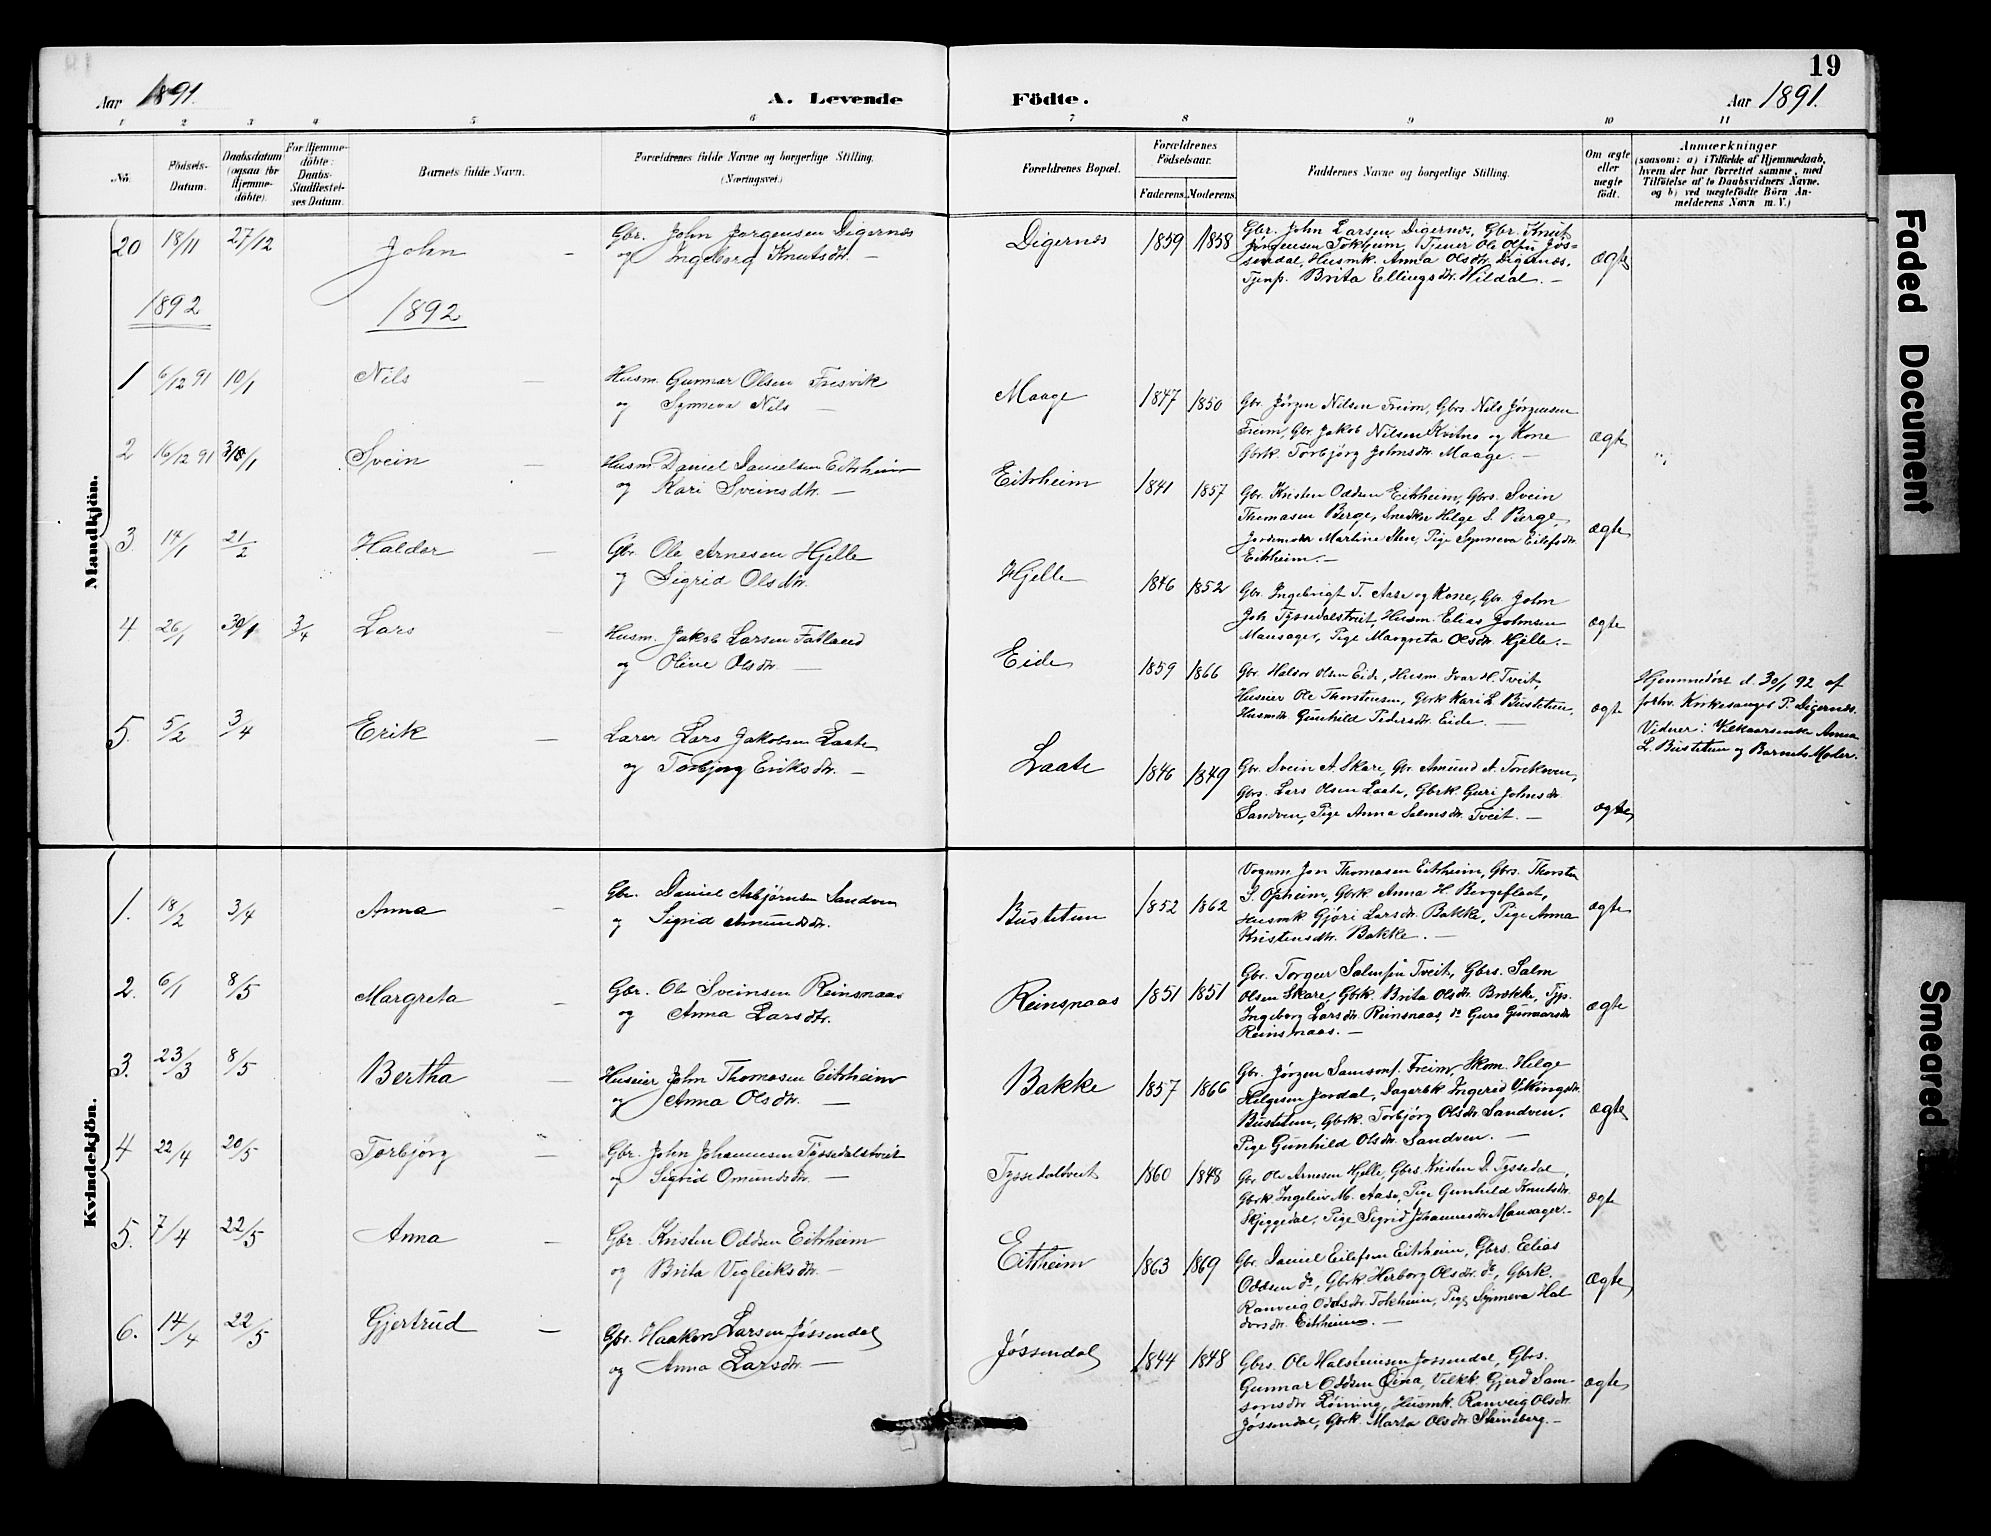 19
Aar 1891.
A. Levende
Födte.
Aar 1891.
1 2 3 4 5 6 7 8 9 10 11
No.
Födsels-Datum.
Daabsdatum (ogsaa for Hjemme-döbte).
For Hjemme-döbte: Daabs-Stadfæstel-ses Datum.
Barnets fulde Navn.
Forældrenes fulde Navne og borgerlige Stilling.
(Næringsvei.)
Forældrenes Bopæl.
Forældrenes Födselsaar.
Faderens. Moderens.
Faddernes Navne og borgerlige Stilling.
Om ægte eller uægte födt.
Anmærkninger
(saasom: a) i Tilfælde af Hjemmedaab,
hvem der har forrettet samme, med
Tilföielse af to Daabsvidners Navne,
og b) ved uegtefödte Börn An-
melderens Navn m. V.)
Mandkjön.
20 18/11 27/12 John -
Gbr. John Jørgensen Digernes
og Ingeborg Knutsdtr. -
Digernes 1859 1858
Gbr. John Larsen Digernes, Gbr. Knut
Jørgensen Tokheim, Tjener Ole Jøs-
sendal, Husmk. Anna Olsdtr. Digernes,
Tjenp. Brita Ellingsdtr. Hildal. -
ægte
1892 1892
1 6/12 91 10/1 Nils -
Husm. Gunnar Olsen Fresvik
og Synneva Nils -
Maage 1847 1850
Gbr. Jørgen Nilsen Freim, Gbrs. Nils Jørgensen
Freim, Gbr. Jakob Nilsen Kvitno og Kone
Gbrk. Torbjørg Johnsdtr. Maage. -
ægte
2 16/12 91 Svein -
Husm. Daniel Danielsen Eitrheim
og Kari Sveinsdtr. -
Eitrheim 1841 1857
Gbr. Kristen Oddsen Eitrheim, Gbrs. Svein
Thomasen Berge, Snedker Helge S. Berge,
Jordemoder Martine Sten, Pige Synneva Eilefsdtr.
Eitrheim. -
ægte
3. 14/1 21/2 Haldor -
Gbr. Ole Arnesen Hjelle
og Sigrid Olsdtr.
Hjelle 1846 1852
Gbr. Ingebrigt T. Aase og Kone, Gbr. John
Joh. Tyssedalstveit, Husm. Elias Johnsen
Mansager, Pige Margreta Olsdtr. Hjelle. -
ægte
4 26/1 30/1 3/4 Lars -
Husm. Jakob Larsen Fatland
og Oline Olsdtr. -
Eide 1859 1866
Gbr. Haldor Olsen Eide, Husm. Ivar H. Tveit,
Huseier Ole Thorstensen, Gbrk Kari L. Bustetun,
Husmdtr. Gunhild Pedersdtr. Eide. -
ægte
Hjemmedøbt d. 30/1 92 af
forhv. Kirkesanger P. Digernes.
Vidner: Vilkaarsenke Anna
L. Bustetun og Barnets Moder.
5. 5/2 3/4 Erik -
Lærer Lars Jakobsen Laate
og Torbjørg Eriksdtr. -
Laate 1846 1849
Gbr. Svein A. Skare, Gbr. Amund A.
Gbrs. Lars Olsen Laate, Gbrk. Guri Johnsdtr.
Sandven, Pige Anna Salmsdtr. Tveit. -
ægte
Kvindekjön.
1. 18/2 3/4 Anna -
Gbr. Daniel Asbjørnsen Sandven
og Sigrid Amundsdtr.
Bustetun 1852 1862
Vognm. Jon Thomasen Eitrheim, Gbrs. Thorsten
S. Opheim, Gbrk Anna H. Bergeflaat,
Husmk Gjøri Larsdtr. Bakke, Pige Anna
Kristensdtr. Bakke. -
ægte
2. 6/1 8/5 Margreta -
Gbr. Ole Sveinsen Reinsnaas
og Anna Larsdtr.
Reinsnaas 1851 1851
Gbr. Torgeir Salmsen Tveit, Gbrs. Salm
Olsen Skare, Gbrk. Brita Olsdtr. Brekke, Tjp.
Ingeborg Larsdtr. Reinsnaas, do Guro Gunnarsdtr.
Reinsnaas. -
ægte
3. 23/3 8/5 Bertha -
Huseier John Thomasen Eitrheim
og Anna Olsdtr. -
Bakke 1857 1866
Gbr. Jørgen Samsons. Freim, Skom. Helge
Helgesen Jordal, Dagarbk Ingerid Vikingsdtr.
Bustetun, Gbrk. Torbjørg Olsdtr. Sandven,
Pige Gunhild Olsdtr. Sandven. -
ægte
4 22/4 20/5 Torbjørg -
Gbr. John Johannesen Tyssedalstveit
og Sigrid Omundsdtr. -
Tyssedaltveit 1860 1848
Gbr. Ole Arnesen Hjelle, Gbrs. Kristen D. Tyssedal,
Gbrk Ingeleiv M. Aase, Pige Gunhild Knutsdtr.
Skjeggedal, Pige Sigrid Johannesdtr. Mansager. -
ægte
5. 7/4 22/5 Anna -
Gbr. Kristen Oddsen Eitrheim
og Brita Vigleiksdtr. -
Eitrheim 1863 1869
Gbr. Daniel Eilefsen Eitrheim, Gbrs. Elias
Oddsen do, Gbrk Herborg Olsdtr. do, Gbrk.
Ranveig Oddsdtr. Tokheim, Pige Synneva Hal-
dorsdtr. Eitrheim. -
ægte
6. 14/4 22/5 Gjertrud -
Gbr. Haakon Larsen Jøssendal
og Anna Larsdtr. -
Jøssendal 1844 1848
Gbrs. Ole Halsteinsen Jøssendal, Gbrs.
Gunnar Oddsen Eina, Vilkk. Gjerd Sam-
sonsdtr. Løining, Husmk. Ranveig Olsdtr.
Jøssendal, Gbrk. Marta Olsdtr. Steinsberg. -
ægte
Faded Document
Smeared